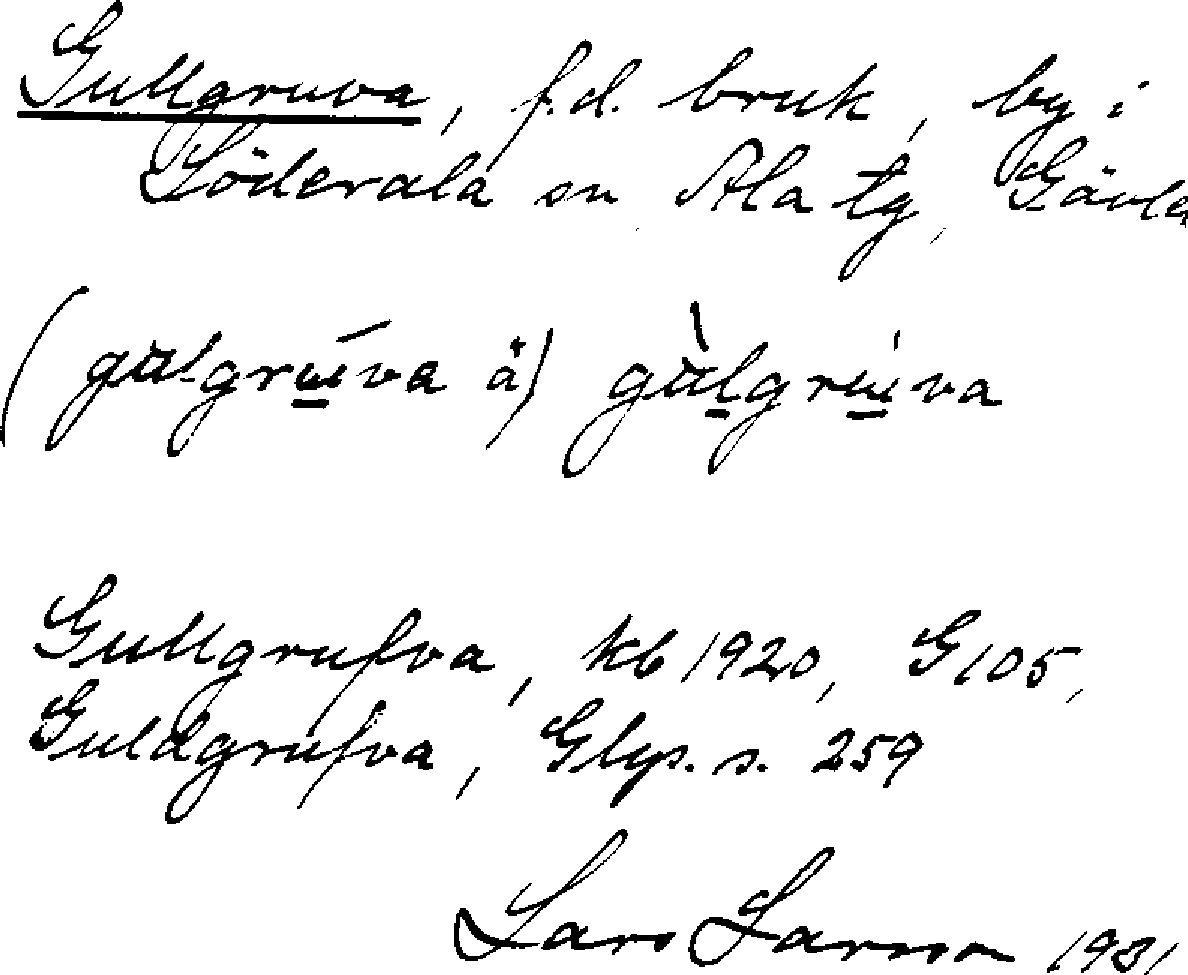 Gullgruva, f.d. bruk, by i
Söderala sn Ala tg, Gävle
(gulgruva ä) gùlgrúva
Gullgrufva, kb 1920, G 105,
Guldgrufva, Glys. s. 259
Lars Larsson 1931